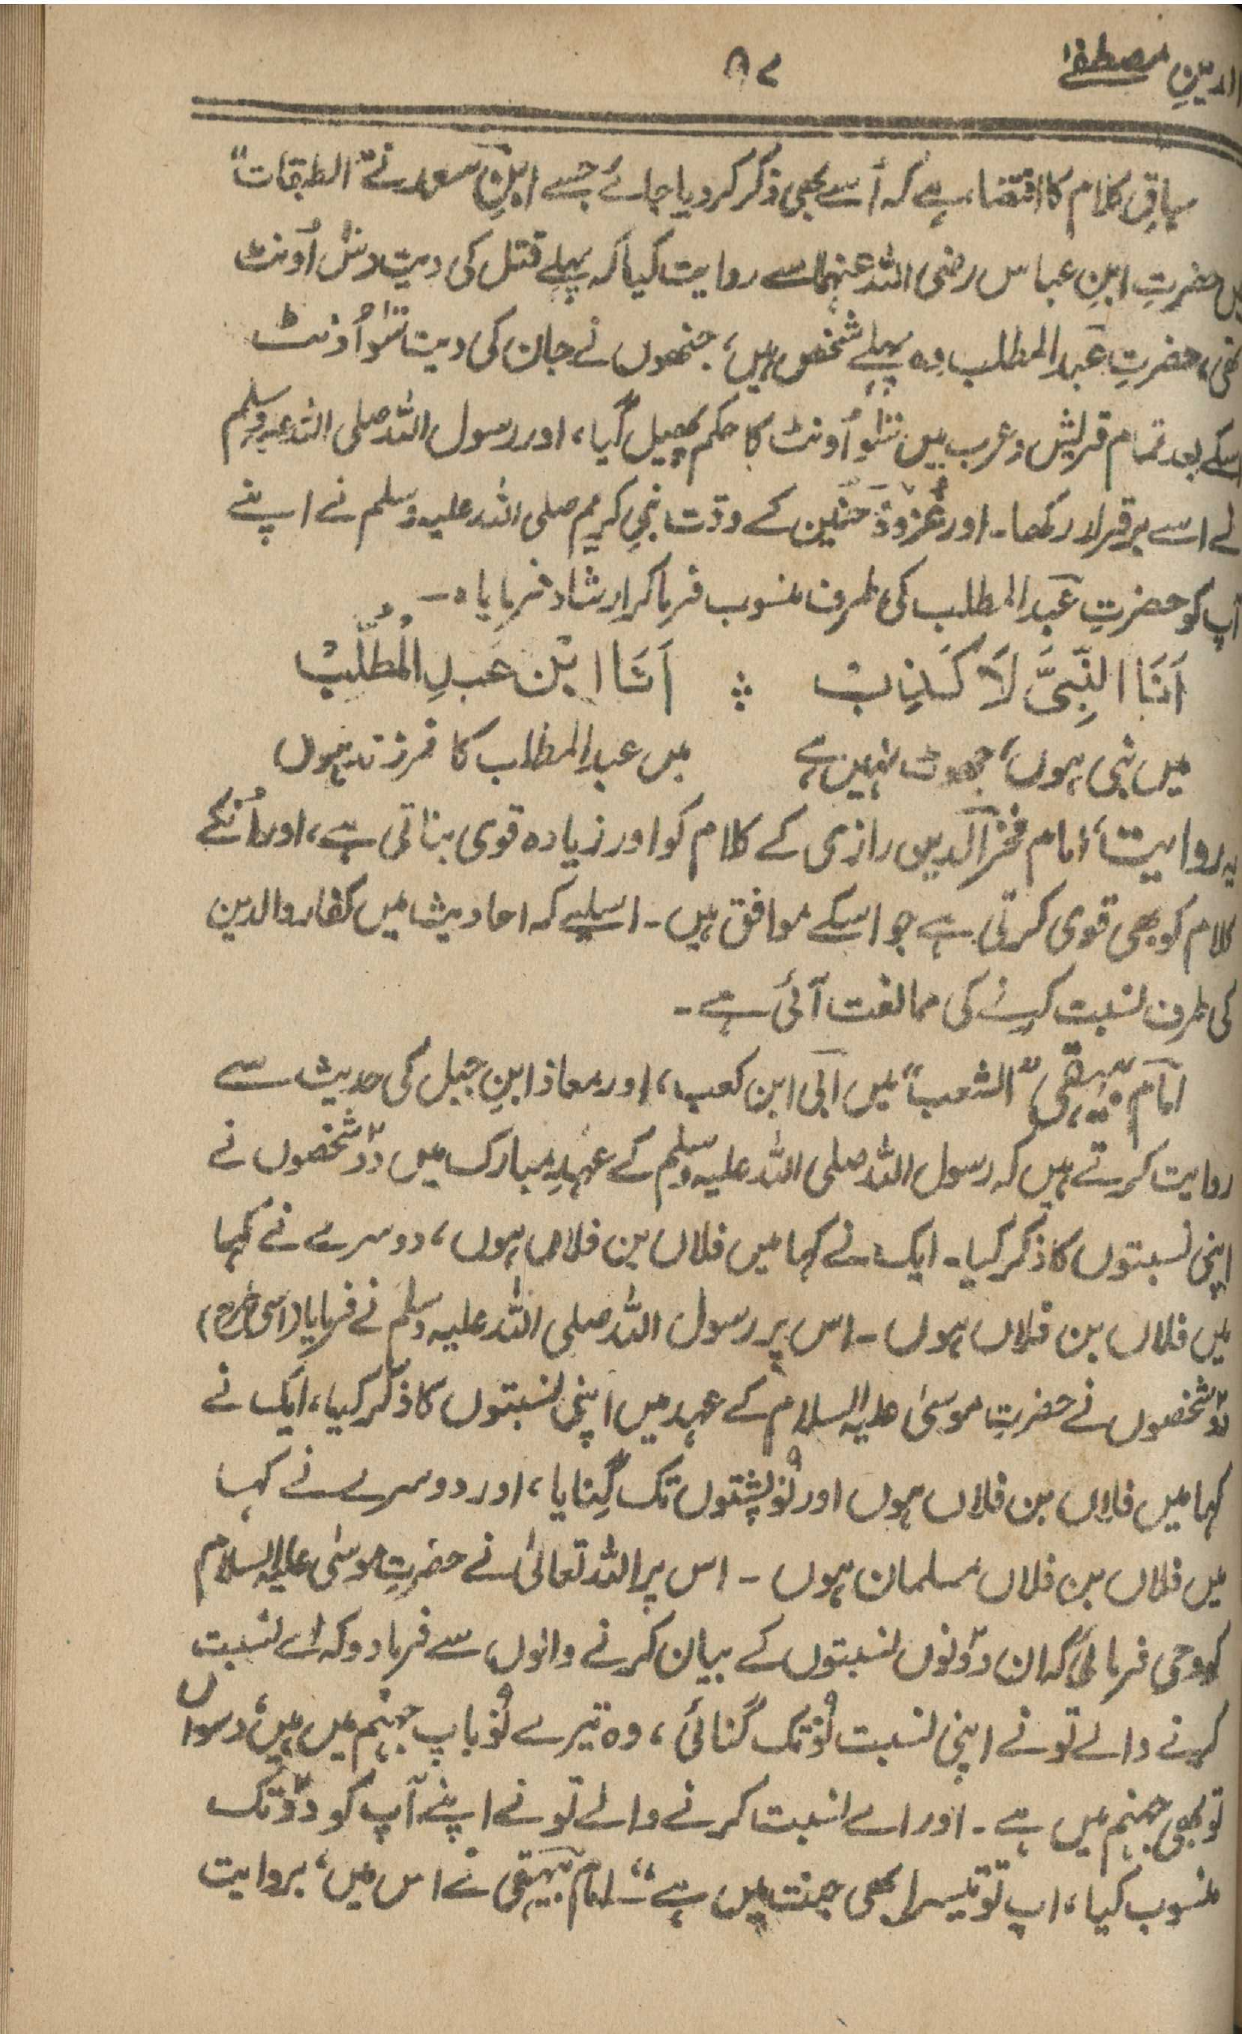 الدینِ مصطفےٰ
۵۷
سیاقِ کلام کا اقتضاء ہے کہ اُسے بھی ذکر کر دیا جائے جسے ابنِ سعد نے "الطبقات"
میں حضرتِ ابنِ عباس رضی اللہ عنہما سے روایت کیا کہ پہلے قتل کی دیت دس اُونٹ
تھی، حضرتِ عبد المطلب وہ پہلے شخص ہیں، جنھوں نے جان کی دیت سَو اُونٹ
اسکے بعد تمام قریش و عرب میں سَو اُونٹ کا حکم پھیل گیا، اور رسول اللہ صلی اللہ علیہ وسلم
نے اسے برقرار رکھا۔ اور غزوۂ حنین کے وقت نبیِ کریم صلی اللہ علیہ وسلم نے اپنے
آپ کو حضرتِ عبد المطلب کی طرف منسوب فرما کر ارشاد فرمایا ہ۔
اَنَا النَّبِیُّ لَا کَذِبْ ؞ اَنَا ابْن عَبدِ الْمُطَّلِبْ
میں نبی ہوں، جھوٹ نہیں ہے میں عبد المطلب کا فرزند ہوں
یہ روایت، امام فخر الدین رازی کے کلام کو اور زیادہ قوی بناتی ہے، اور اُنکے
کلام کو بھی قوی کرتی ہے جو اسکے موافق ہیں۔ اسلیے کہ احادیث میں کفار والدین
کی طرف نسبت کرنے کی ممانعت آئی ہے۔
امام بیہقی "الشعب" میں ابی ابن کعب، اور معاذ ابنِ جبل کی حدیث سے
روایت کرتے ہیں کہ رسول اللہ صلی اللہ علیہ وسلم کے عہدِ مبارک میں دو شخصوں نے
اپنی نسبتوں کا ذکر کیا۔ ایک نے کہا میں فلاں بن فلاں ہوں، دوسرے نے کہا
میں فلاں بن فلاں ہوں۔ اس پر رسول اللہ صلی اللہ علیہ وسلم نے فرمایا (اسی طرح)
دو شخصوں نے حضرتِ موسیٰ علیہ السلام کے عہد میں اپنی نسبتوں کا ذکر کیا، ایک نے
کہا میں فلاں بن فلاں ہوں اور نو پشتوں تک گِنایا، اور دوسرے نے کہا
میں فلاں بن فلاں مسلمان ہوں ۔ اس پر اللہ تعالیٰ نے حضرتِ موسیٰ علیہ السلام
کو وحی فرمائی کہ ان دونوں نسبتوں کے بیان کرنے والوں سے فرما دو کہ اے نسبت
کرنے والے تونے اپنی نسبت نو تک گنائی، وہ تیرے نو باپ جہنم میں ہیں، دسواں
تو بھی جہنم میں ہے ۔ اور اے نسبت کرنے والے تونے اپنے آپ کو دو تک
منسوب کیا، اب تو تیسرا بھی جنت میں ہے"۔ امام بیہقی نے اس میں، بروایت